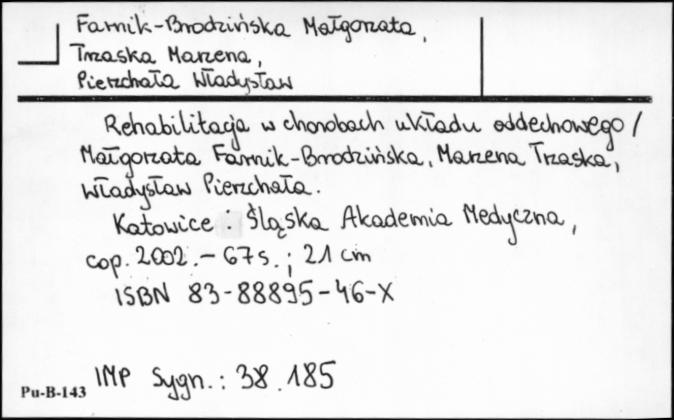 Farnik-Brodzińska Małgorzata,
Trzaska Marzena,
Pierzchała Władysław
Rehabilitacja w chorobach układu oddechowego /
Małgorzata Farnik-Brodzińska, Marzena Trzaska,
Władysław Pierzchała.
Katowice : Śląska Akademia Medyczna,
cop. 2002. - 67 s. ; 21 cm
ISBN 83-88895-46-X
IMP Sygn. : 38.185
Pu-B-143